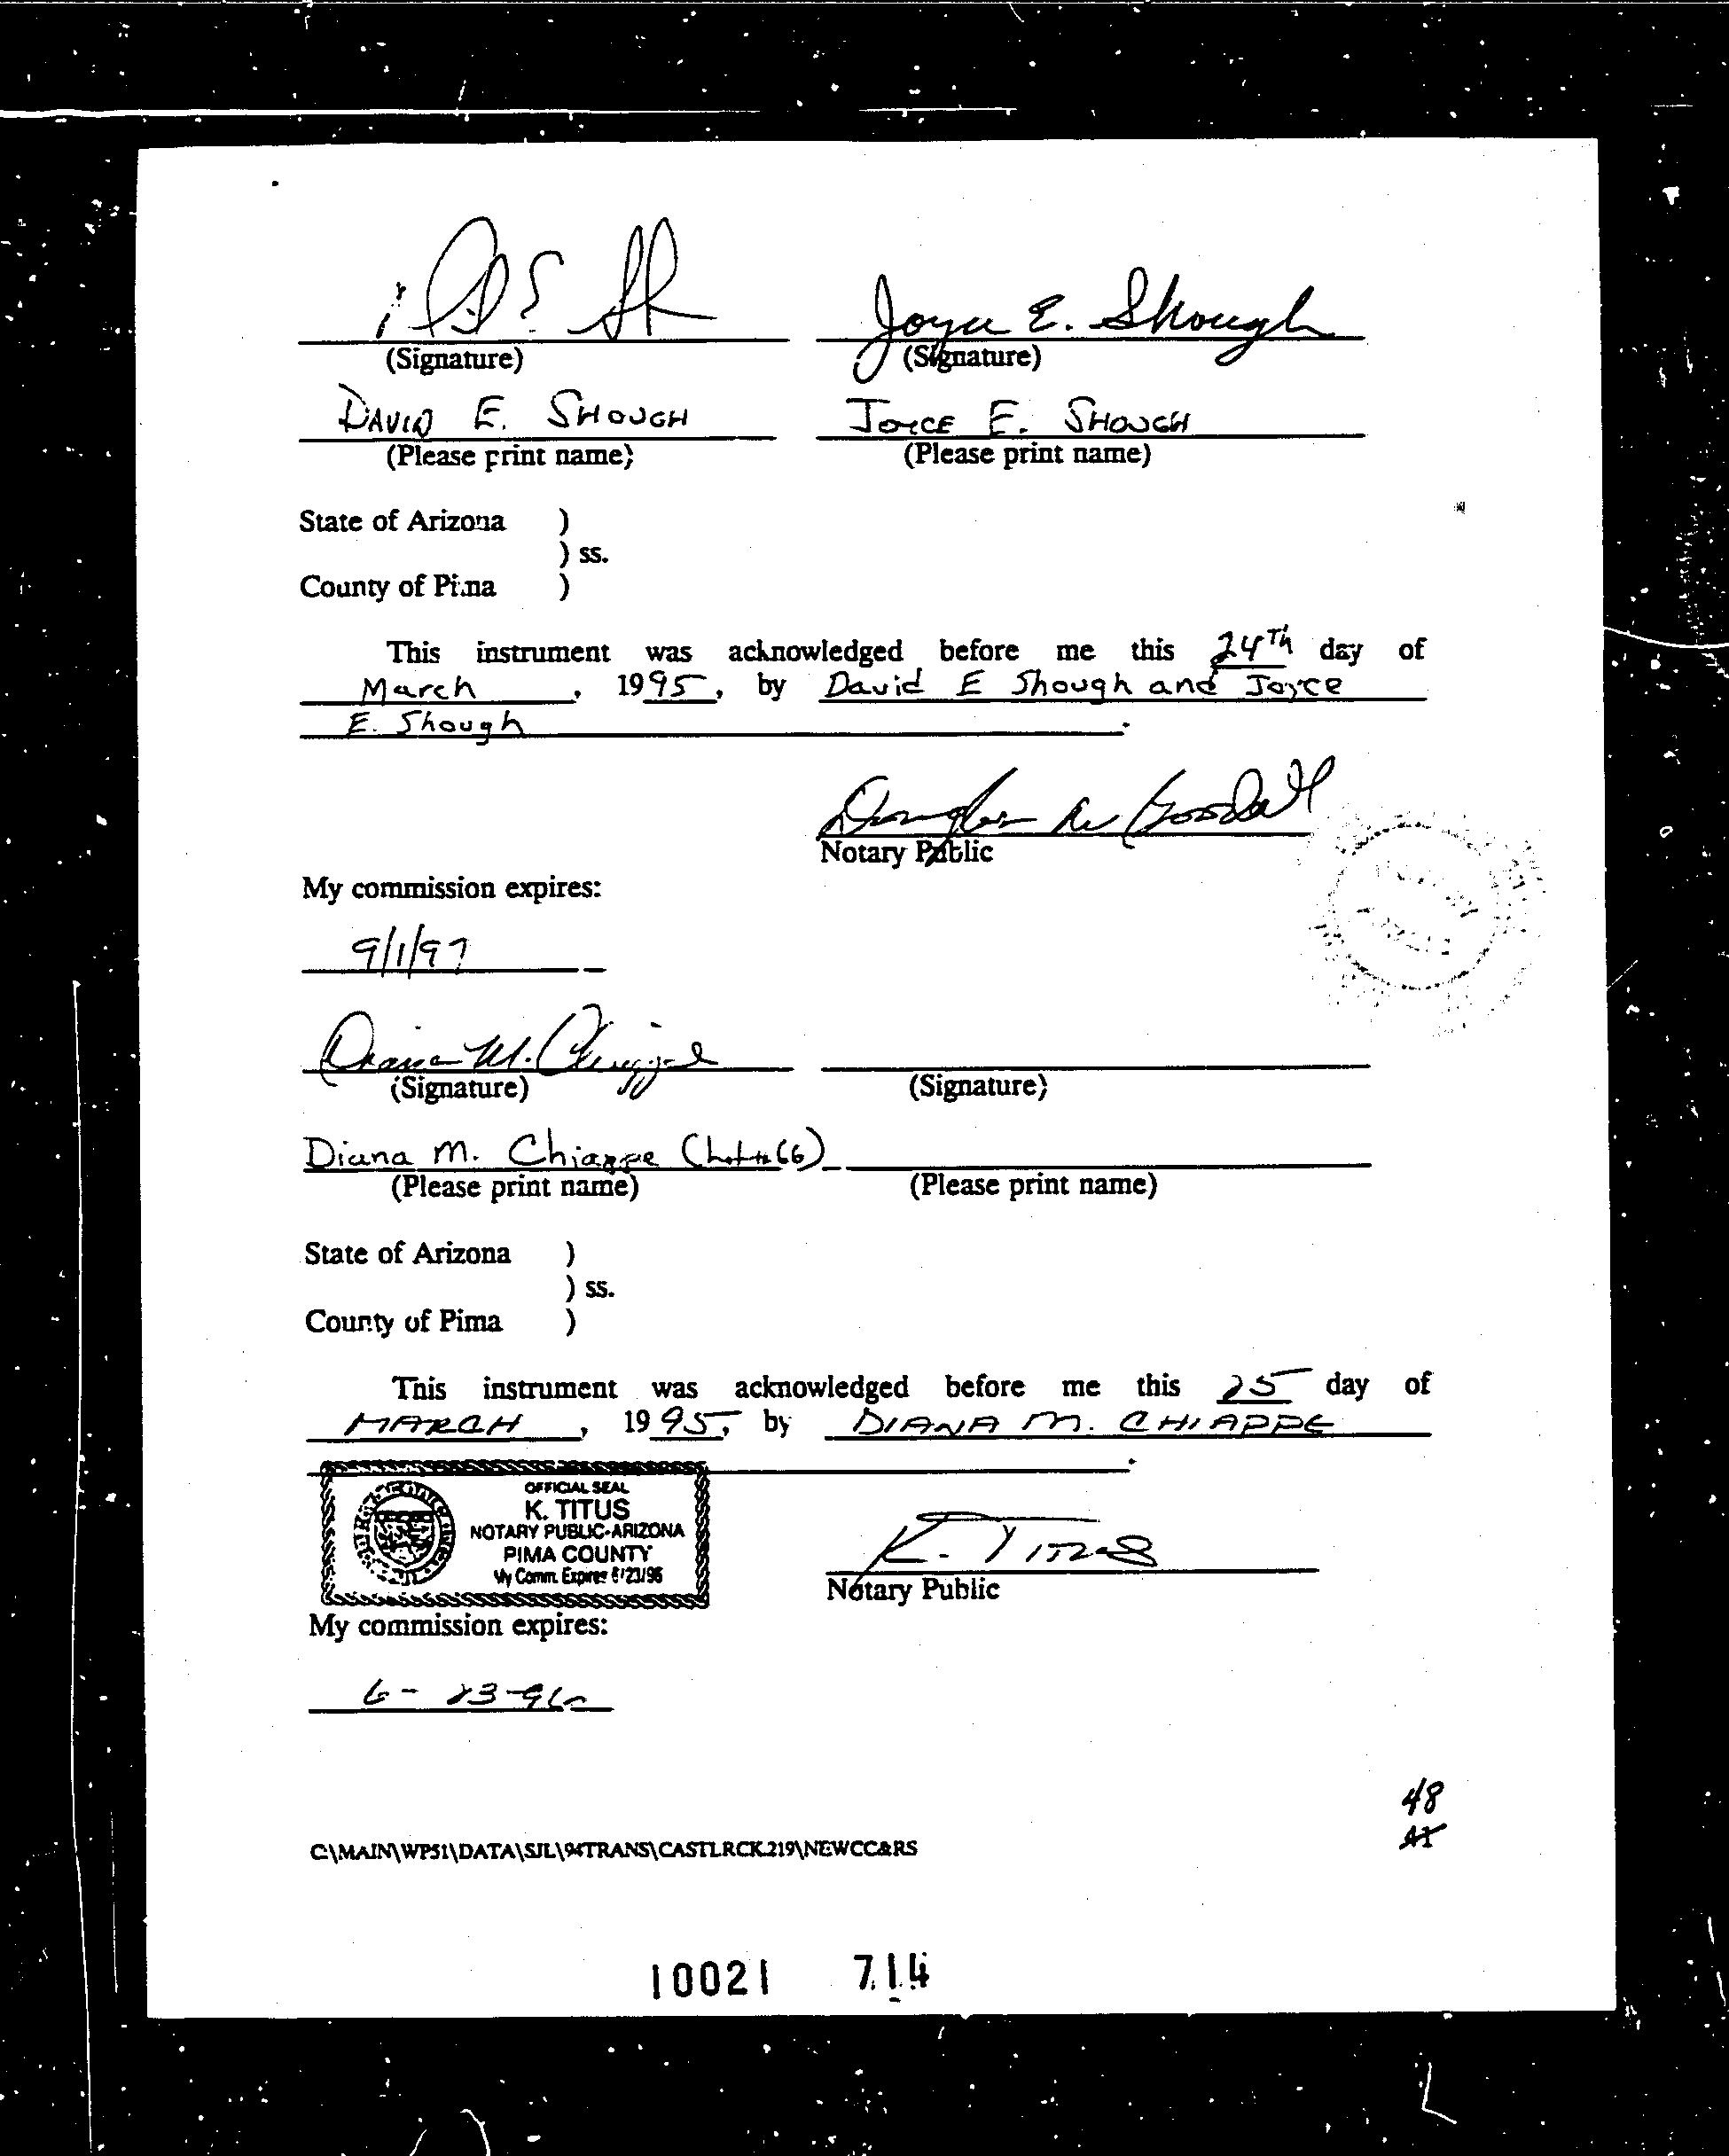 Joyce E. Shough
(Signature) (Signature)
DAVID E. SHOUGH JOYCE E. SHOUGH
(Please print name) (Please print name)
State of Arizona )
) ss.
County of Pima )
This instrument was acknowledged before me this 24Th day of
March, 1995, by David E Shough and Joyce
E. Shough.
Notary Public
My commission expires:
9/1/97
Diana M. Chiappe
(Signature) (Signature)
Diana M. Chiappe (Lot # 66)
(Please print name) (Please print name)
State of Arizona )
) ss.
County of Pima )
This instrument was acknowledged before me this 25 day of
MARCH, 1995, by DIANA M. CHIAPPE
.
OFFICIAL SEAL
K. TITUS
NOTARY PUBLIC-ARIZONA
PIMA COUNTY
My Comm. Expires 6/23/96
K. Titus
Notary Public
My commission expires:
6-23-96
48
C:\MAIN\WP51\DATA\SJL\94TRANS\CASTLRCK.219\NEWCC&RS
10021 714